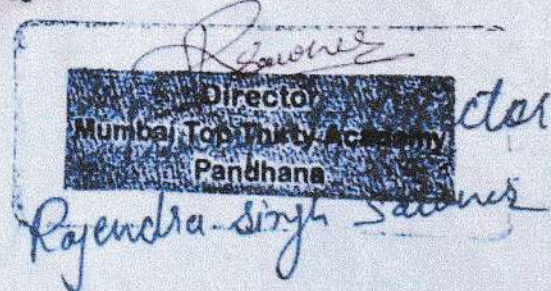 Director
Mumbai Top Thirty Academy
Pandhana
Rajendra singh